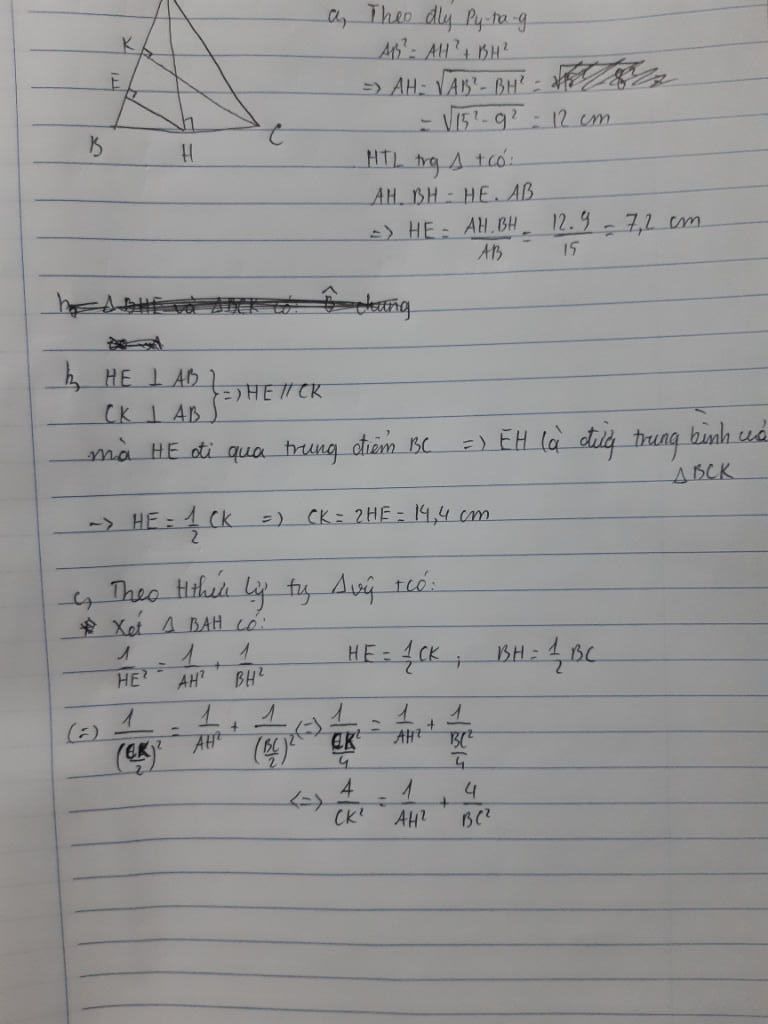 K
E
B
H
C
a, Theo đlý Py-ta-g
AB² = AH² + BH²
=> AH = √(AB² - BH²) =
= √(15² - 9²) = 12 cm
HTL trg Δ +có:
AH.BH = HE.AB
=> HE = AH.BH/AB = 12.9/15 = 7,2 cm
b, Δ BHE và ΔBCK có: B̂ chung
b, HE ⊥ AB
CK ⊥ AB } => HE // CK
mà HE đi qua trung điểm BC => EH là đường trung bình của
ΔBCK
-> HE = 1/2 CK => CK = 2HE = 14,4 cm
c, Theo Hthức lg tg Δvg +có:
* Xét Δ BAH có:
1/HE² = 1/AH² + 1/BH² HE = 1/2 CK ; BH = 1/2 BC
(=) 1/(CK/2)² = 1/AH² + 1/(BC/2)² <=> 1/(CK²/4) = 1/AH² + 1/(BC²/4)
<=> 4/CK² = 1/AH² + 4/BC²